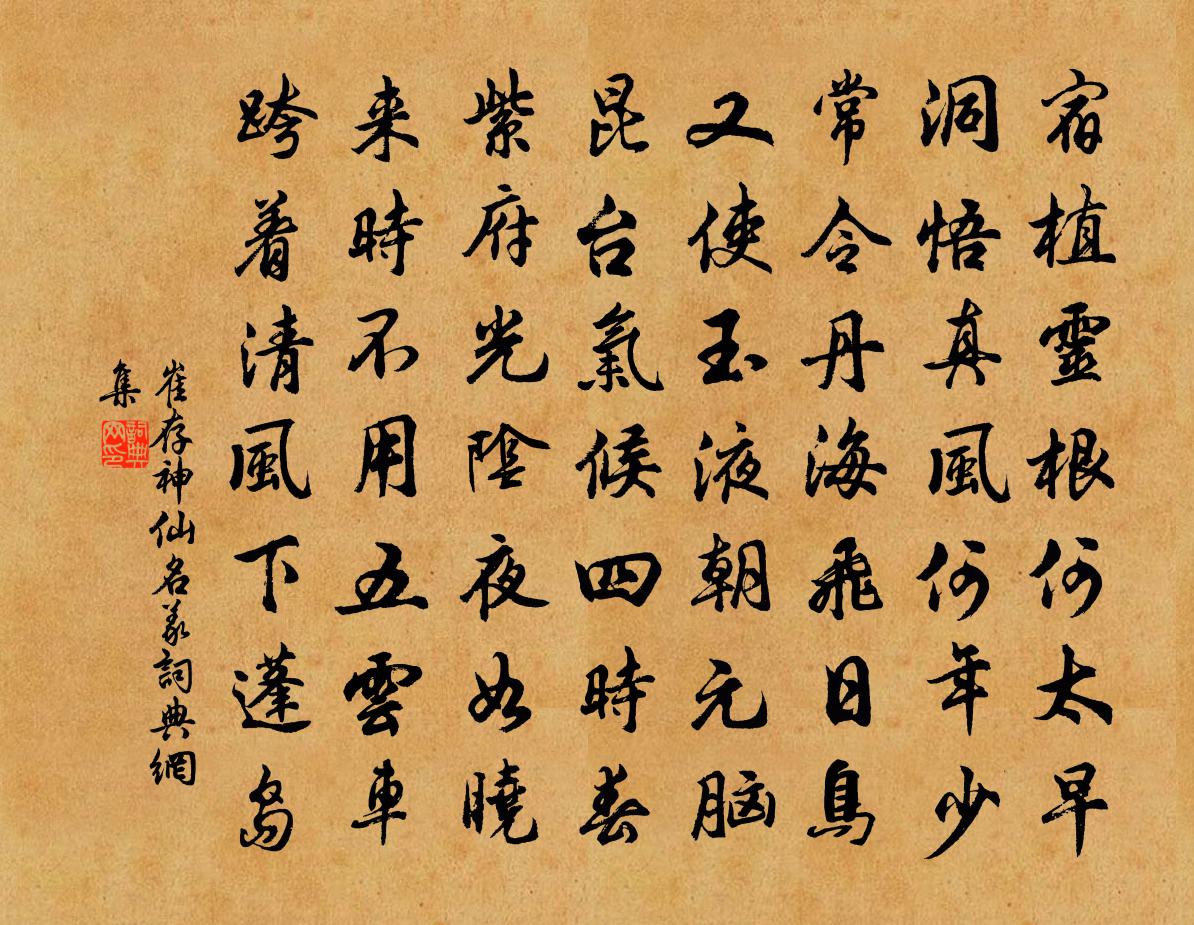 宿植靈根何太早
洞悟真風何年少
常令丹海飛日烏
又使玉液朝元脑
昆台氣候四時春
紫府光陰夜如曉
来時不用五雲車
跨着清風下蓬島
崔存神仙名義詞典網
集
詞典网印